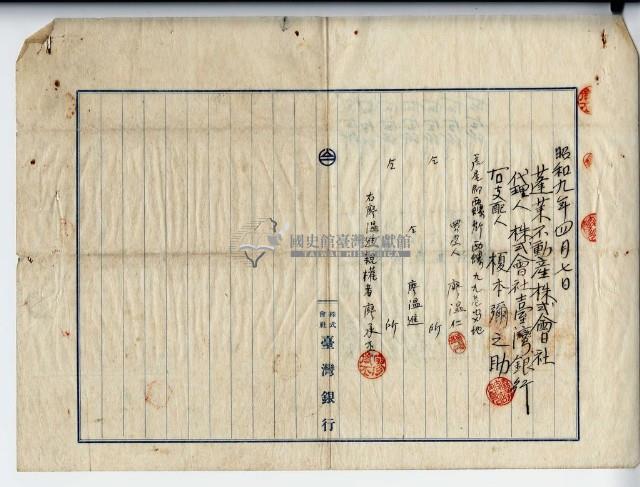 昭和九年四月七日
蓬萊不動產株式會社
代理人 株式會社臺灣銀行
右支配人 榎本彌之助
虎尾郡西螺街西螺九九〇番地
買受人 廖溫仁
仝 所
仝 廖溫進
仝 所
右廖溫進親權者廖承丕
株式會社 臺灣銀行
國史館臺灣文獻館
TAIWAN HISTORICA